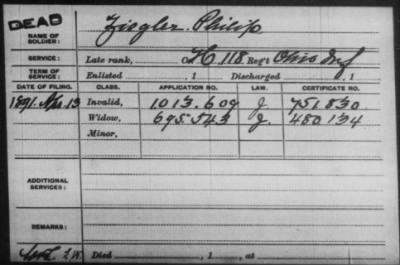 DEAD
NAME OF SOLDIER: Ziegler Philip
SERVICE: Late rank, Co H, 118 Reg't Ohio Inf
TERM OF SERVICE: Enlisted , 1 Discharged , 1
DATE OF FILING. CLASS. APPLICATION NO. LAW. CERTIFICATE NO.
1891. Apr. 13 Invalid, 1013.609 J. 751830
Widow, 695.543 J. 480134
Minor,
ADDITIONAL SERVICES:
REMARKS:
Died , 1 , at